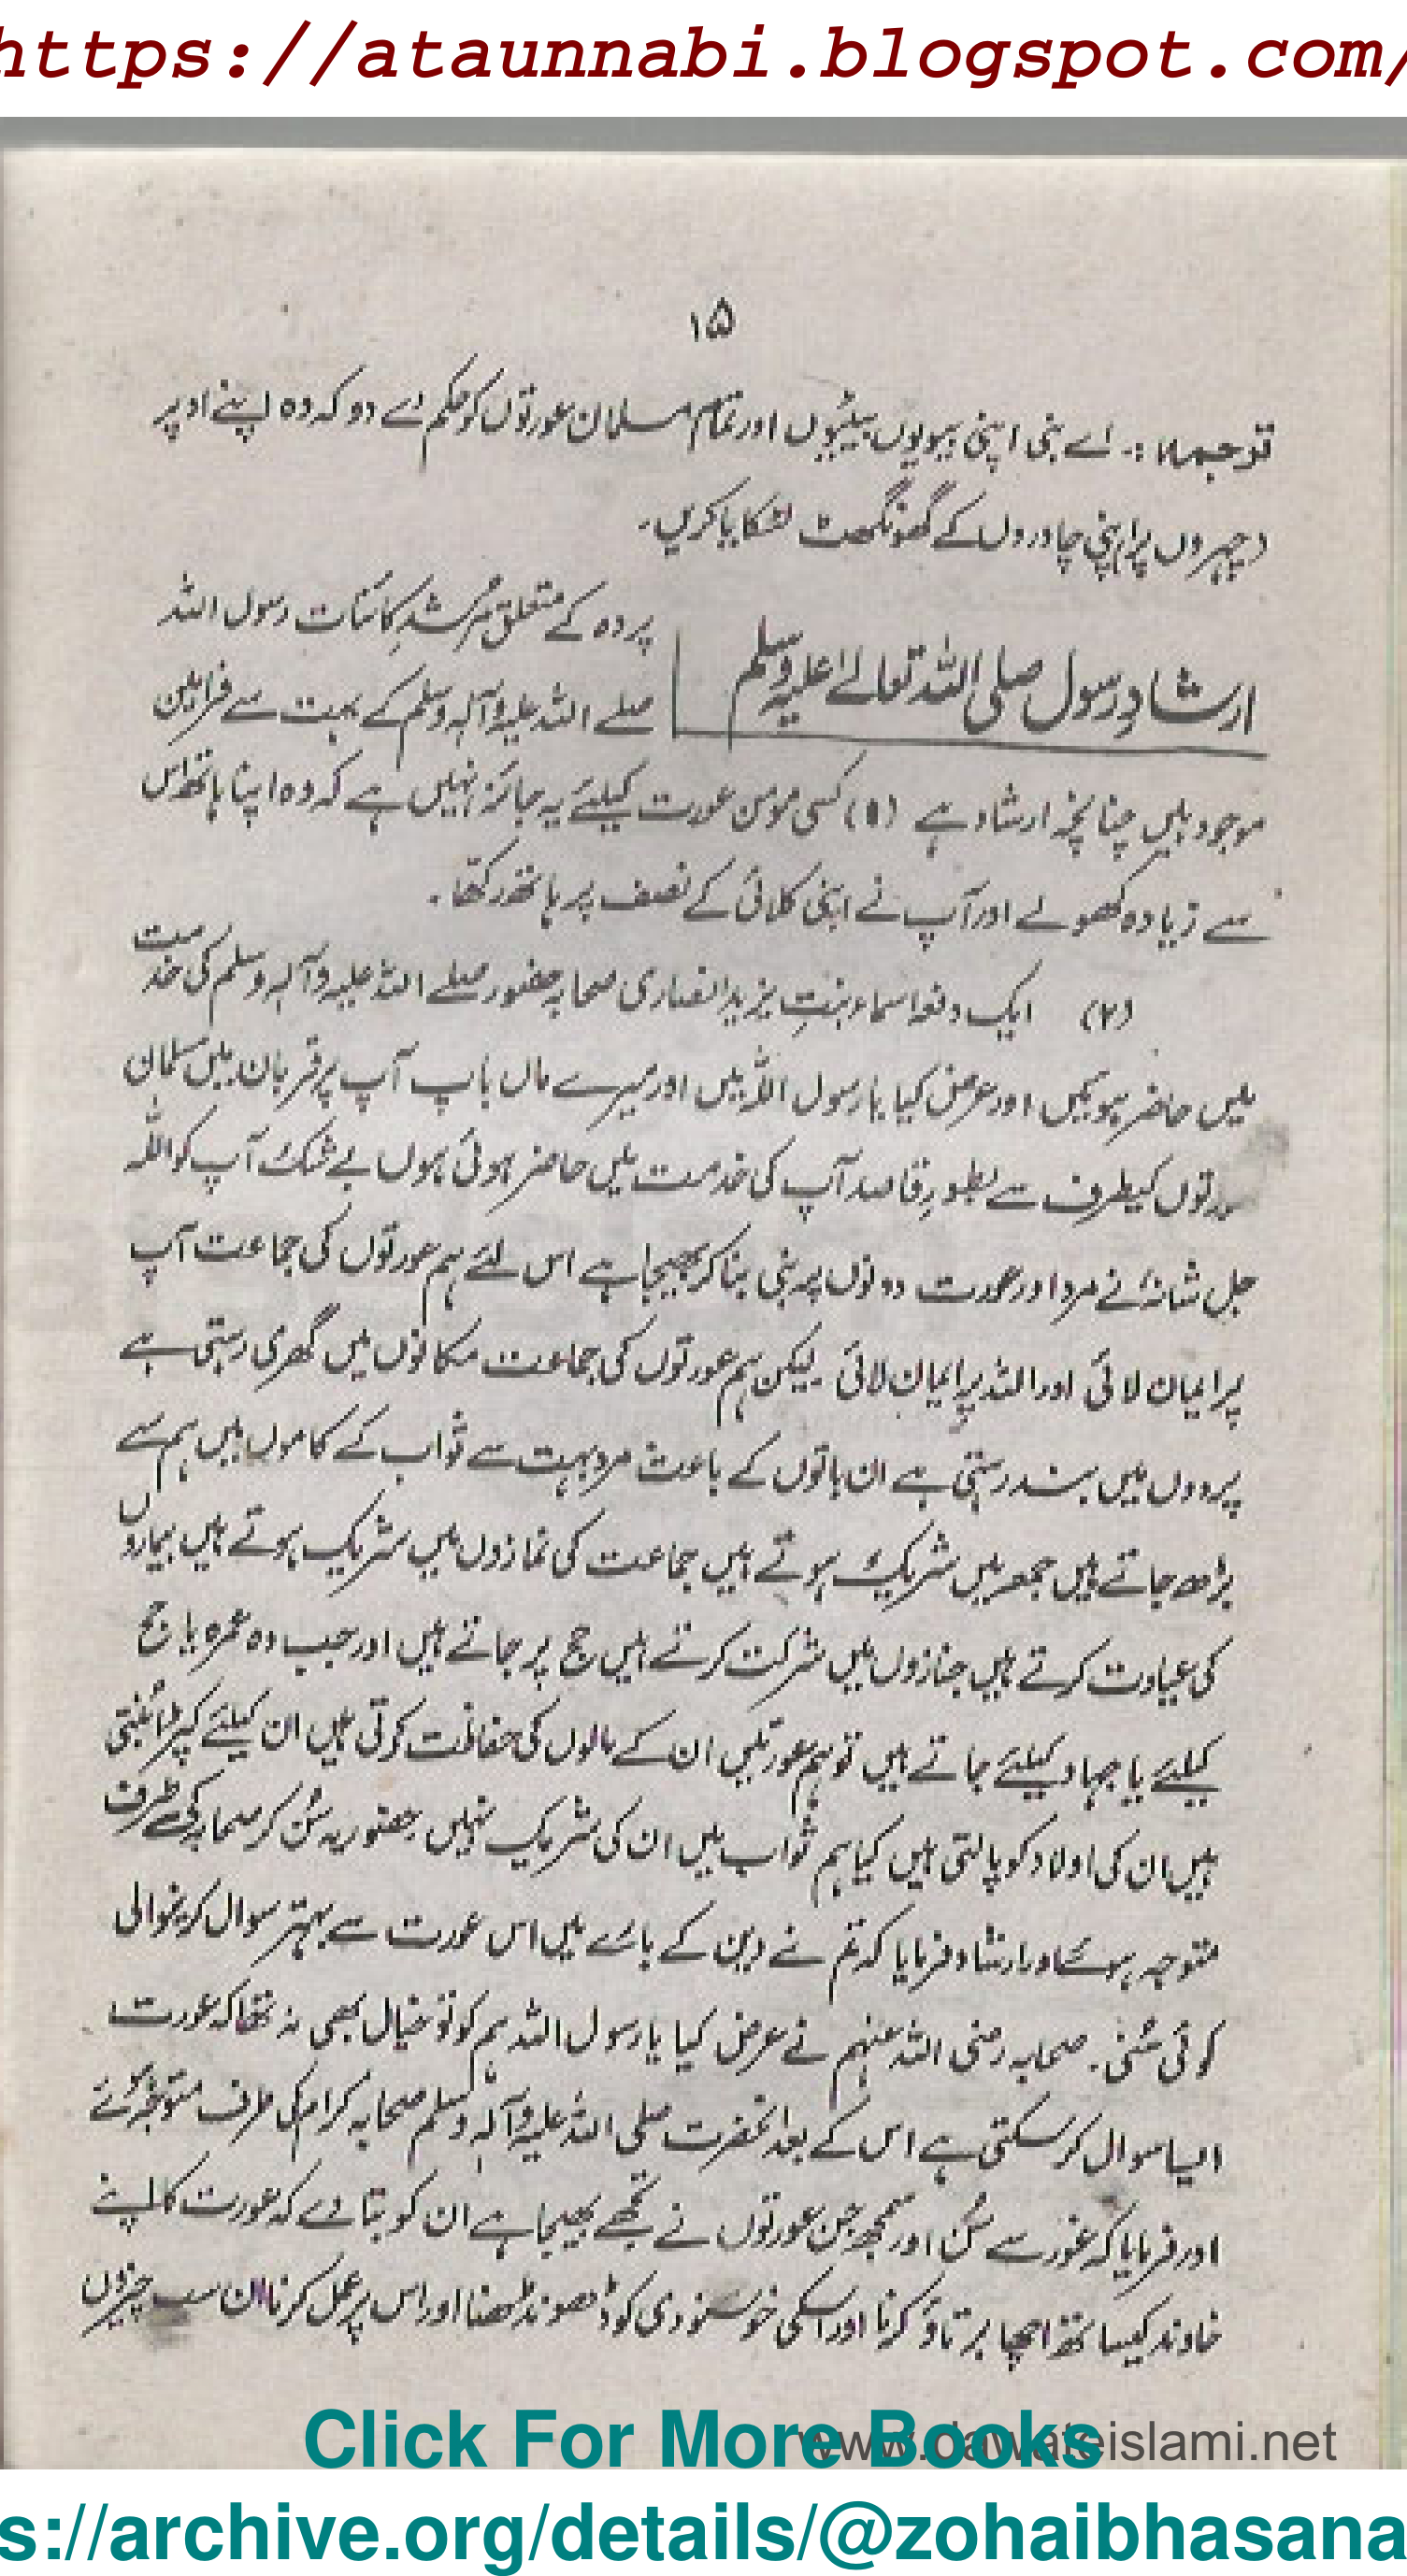 https://ataunnabi.blogspot.com/
۱۵
ترجمہ :۔ اے نبی اپنی بیویوں بیٹیوں اور تمام مسلمان عورتوں کو حکم دے دو کہ وہ اپنے اوپر
(چہروں پر) اپنی چادروں کے گھونگھٹ لٹکایا کریں۔
ارشادِ رسول صلی اللہ تعالےٰ علیہ وسلم
پردہ کے متعلق مرشدِ کائنات رسول اللہ
صلے اللہ علیہ وآلہ وسلم کے بہت سے فرامین
موجود ہیں چنانچہ ارشاد ہے (۱) کسی مومن عورت کیلئے یہ جائز نہیں ہے کہ وہ اپنا ہاتھ اس
سے زیادہ کھولے اور آپ نے اپنی کلائی کے نصف پر ہاتھ رکھا۔
(۲) ایک دفعہ اسماء بنتِ یزید انصاری صحابیہ حضور صلے اللہ علیہ وآلہ وسلم کی خدمت
میں حاضر ہوئیں اور عرض کیا یا رسول اللہ میں اور میرے ماں باپ آپ پر قربان میں مسلمان
عورتوں کیطرف سے بطورِ قاصد آپ کی خدمت میں حاضر ہوئی ہوں بے شک آپ کو اللہ
جل شانہٗ نے مرد اور عورت دونوں پر نبی بنا کر بھیجا ہے اس لئے ہم عورتوں کی جماعت آپ
پر ایمان لائی اور اللہ پر ایمان لائی ۔ لیکن ہم عورتوں کی جماعت مکانوں میں گھری رہتی ہے
پردوں میں بند رہتی ہے ان باتوں کے باعث مرد بہت سے ثواب کے کاموں میں ہم سے
بڑھ جاتے ہیں جمعہ میں شریک ہوتے ہیں جماعت کی نمازوں میں شریک ہوتے ہیں بیماروں
کی عیادت کرتے ہیں جنازوں میں شرکت کرتے ہیں حج پر جاتے ہیں اور جب وہ عمرہ یا حج
کیلئے یا جہاد کیلئے جاتے ہیں تو ہم عورتیں ان کے مالوں کی حفاظت کرتی ہیں ان کیلئے کپڑا بنتی
ہیں ان کی اولاد کو پالتی ہیں کیا ہم ثواب میں ان کی شریک نہیں۔ حضور یہ سُن کر صحابہ کی طرف
متوجہ ہوئے اور ارشاد فرمایا کہ تم نے دین کے بارے میں اس عورت سے بہتر سوال کرنیوالی
کوئی سُنی۔ صحابہ رضی اللہ عنہم نے عرض کیا یا رسول اللہ ہم کو تو خیال بھی نہ تھا کہ عورت
ایسا سوال کر سکتی ہے اس کے بعد آنحضرت صلی اللہ علیہ وآلہٖ وسلم صحابہ کرام کی طرف متوجہ ہوئے
اور فرمایا کہ غور سے سُن اور سمجھ جن عورتوں نے تجھے بھیجا ہے ان کو بتا دے کہ عورت کا اپنے
خاوند کیساتھ اچھا برتاؤ کرنا اور اسکی خوشنودی کو ڈھونڈھنا اور اس پر عمل کرنا ان سب چیزوں
Click For More Books
www.dawateislami.net
s://archive.org/details/@zohaibhasana